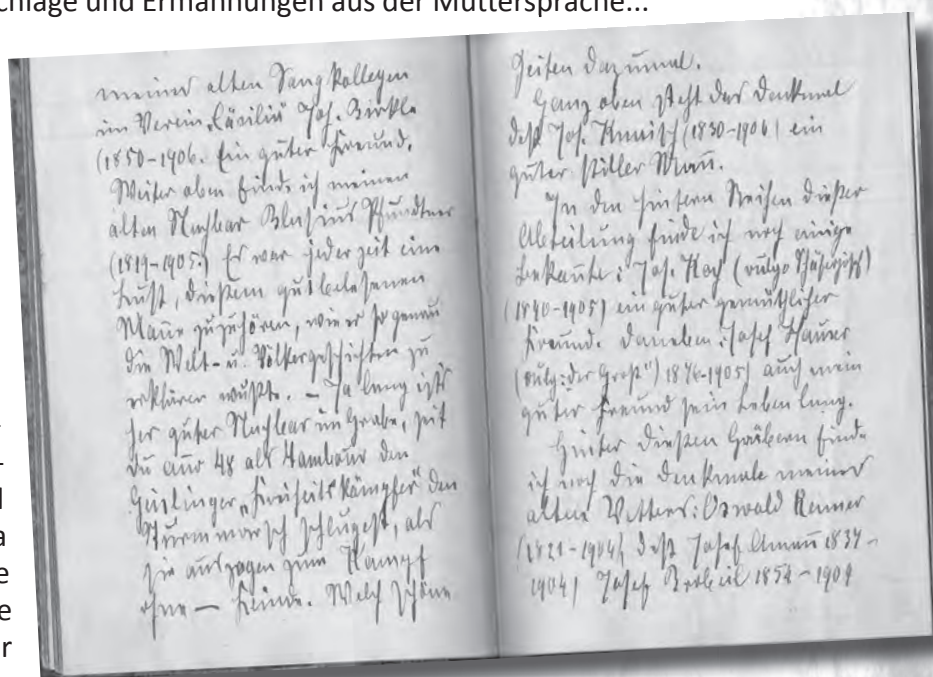 chläge und Ermahnungen aus der Muttersprache...
meines alten Sangkollegen
im Verein „Cäcilia" Jos. Birkle
(1850-1906. Ein guter Freund.
Weiter oben finde ich meinen
alten Nachbar Blasius Pfundtner
(1819-1905.) Es war jederzeit eine
Lust, dießem gutbelesenen
Mañe zuzuhören, wie er so genau
die Welt- u. Völkergeschichten zu
erklären wußte. – Ja lang ists
her guter Nachbar im Grabe, seit
du ano 48 als Tambour den
Geislinger „Freiheitskämpfer" den
Sturmmarsch schlugest, als
sie auszogen zum Kampf
ohne – Feinde. Welch schöne
Zeiten dazumal.
Ganz oben steht das Denkmal
deß Jos. (1830-1906) ein
guter stiller Mañ.
In den hintern Reihen dießer
Abteilung finde ich noch einige
Bekañte: Jos. Hay (vulgo)
(1840-1905) ein guter gemüthlicher
Freund. Daneben: Josef Hauser
(vulg: der Groß") 1876-1905) auch mein
guter Freund sein Leben lang.
Hinter dießen Gräbern finde
ich noch die Denkmale meines
alten Vetters: Oswald Renner
(1821-1904), deß Josef Amañ 1837-
1904) Josef 1852-1909
l
a
e
e
r